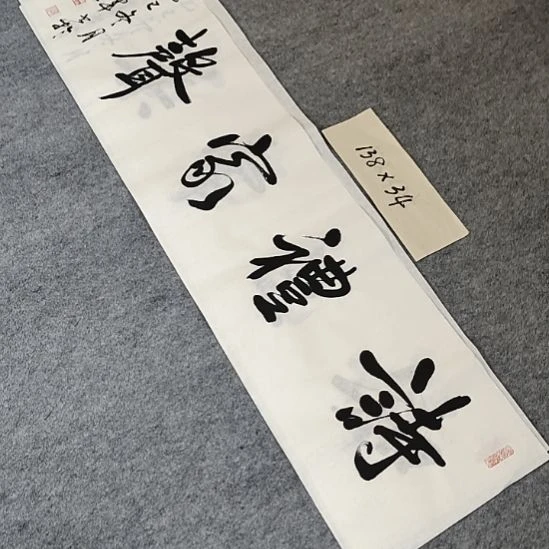 詩禮家聲
138×34